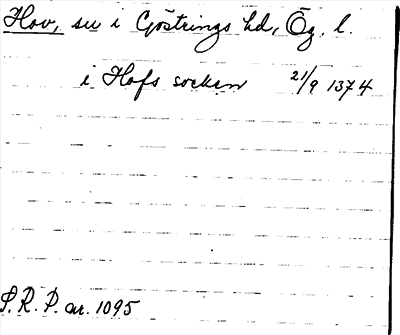 Hov, sn i Göstrings hd, Ög. l.
i Hofs socken 21/9 1374
S.R.P. nr. 1095